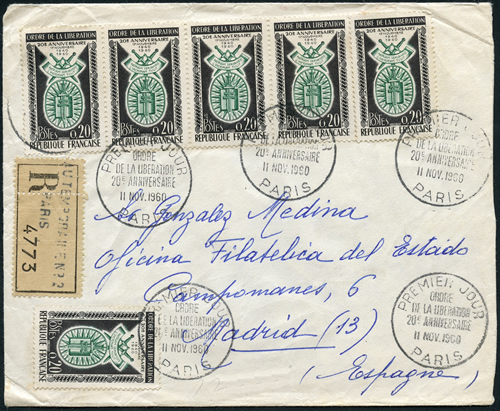 ORDRE DE LA LIBERATION
20E ANNIVERSAIRE
1940
1960
POSTES 0,20
REPUBLIQUE FRANÇAISE
ORDRE DE LA LIBERATION
20E ANNIVERSAIRE
1940
1960
POSTES 0,20
REPUBLIQUE FRANÇAISE
ORDRE DE LA LIBERATION
20E ANNIVERSAIRE
1940
1960
POSTES 0,20
REPUBLIQUE FRANÇAISE
ORDRE DE LA LIBERATION
20E ANNIVERSAIRE
1940
1960
POSTES 0,20
REPUBLIQUE FRANÇAISE
ORDRE DE LA LIBERATION
20E ANNIVERSAIRE
1940
1960
POSTES 0,20
REPUBLIQUE FRANÇAISE
PREMIER JOUR
ORDRE
DE LA LIBERATION
20e ANNIVERSAIRE
11 NOV. 1960
PARIS
PREMIER JOUR
DE LA LIBERATION
20e ANNIVERSAIRE
11 NOV. 1960
PARIS
PREMIER JOUR
ORDRE
DE LA LIBERATION
20e ANNIVERSAIRE
11 NOV. 1960
PARIS
R
PARIS
4773
Gonzalez Medina
Oficina Filatelica del Estado
Campomanes, 6
Madrid (13)
(Espagne)
PREMIER JOUR
ORDRE
DE LA LIBERATION
20e ANNIVERSAIRE
11 NOV. 1960
PARIS
PREMIER JOUR
ORDRE
DE LA LIBERATION
20e ANNIVERSAIRE
11 NOV. 1960
PARIS
ORDRE DE LA LIBERATION
POSTES 0,20
REPUBLIQUE FRANÇAISE